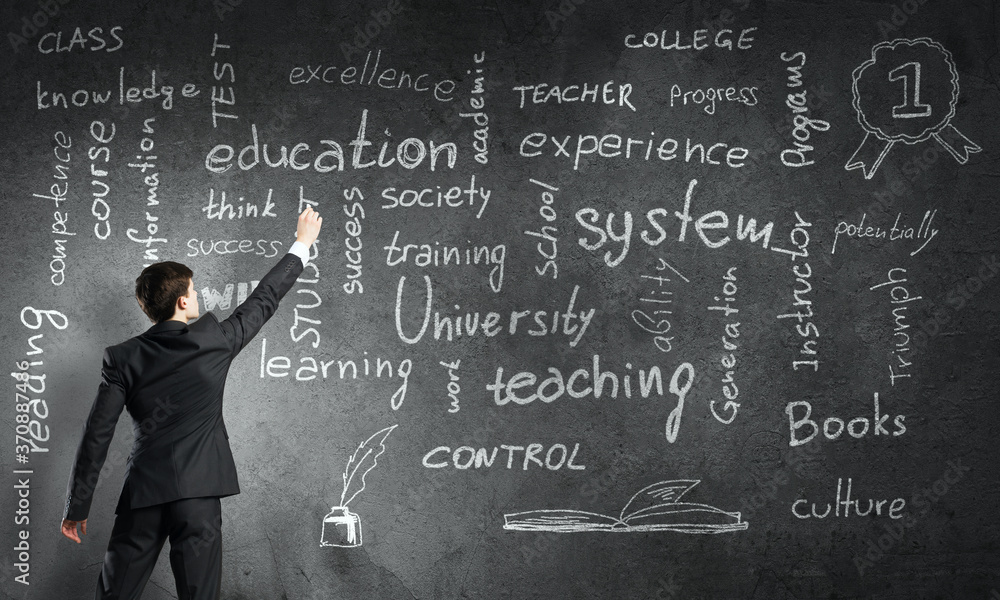 CLASS
COLLEGE
knowledge
TEST
excellence
academic
TEACHER
Progress
Programs
1
competence
course
information
education
experience
think
STUDENT
success
society
school
system
potentially
success
training
ability
Instructor
WIN
University
Generation
Triumph
reading
learning
work
teaching
Books
CONTROL
culture
Adobe Stock | #370887486